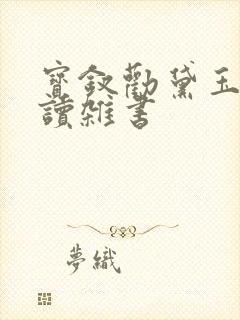 寶釵勸黛玉
讀雜書
夢織